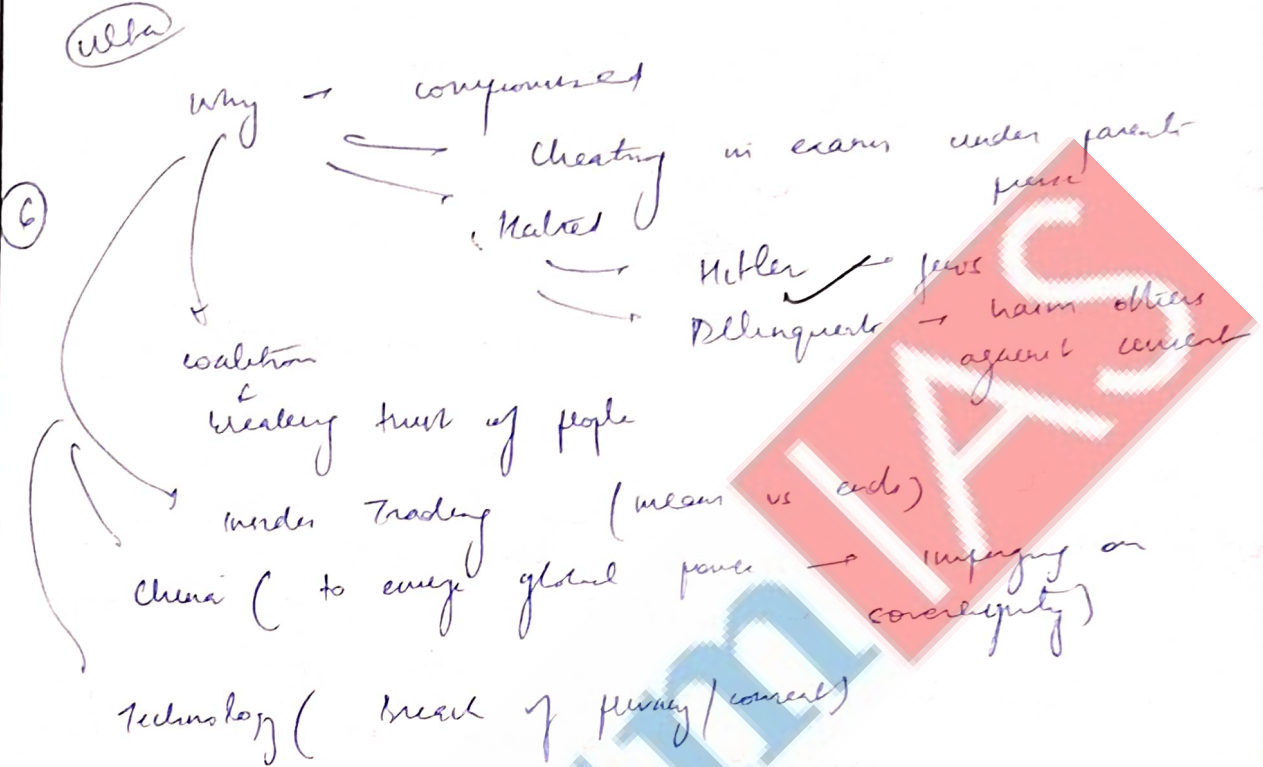 Why → compromised
Cheating in exams under parents
Hatred
Hitler → Jews
Delinquents → harm others
against consent
coalition
breaking trust of people
Insider Trading (means vs ends)
China ( to emerge global power → impinging on
sovereignty)
Technology ( Breach of privacy / consent)
6
IAS